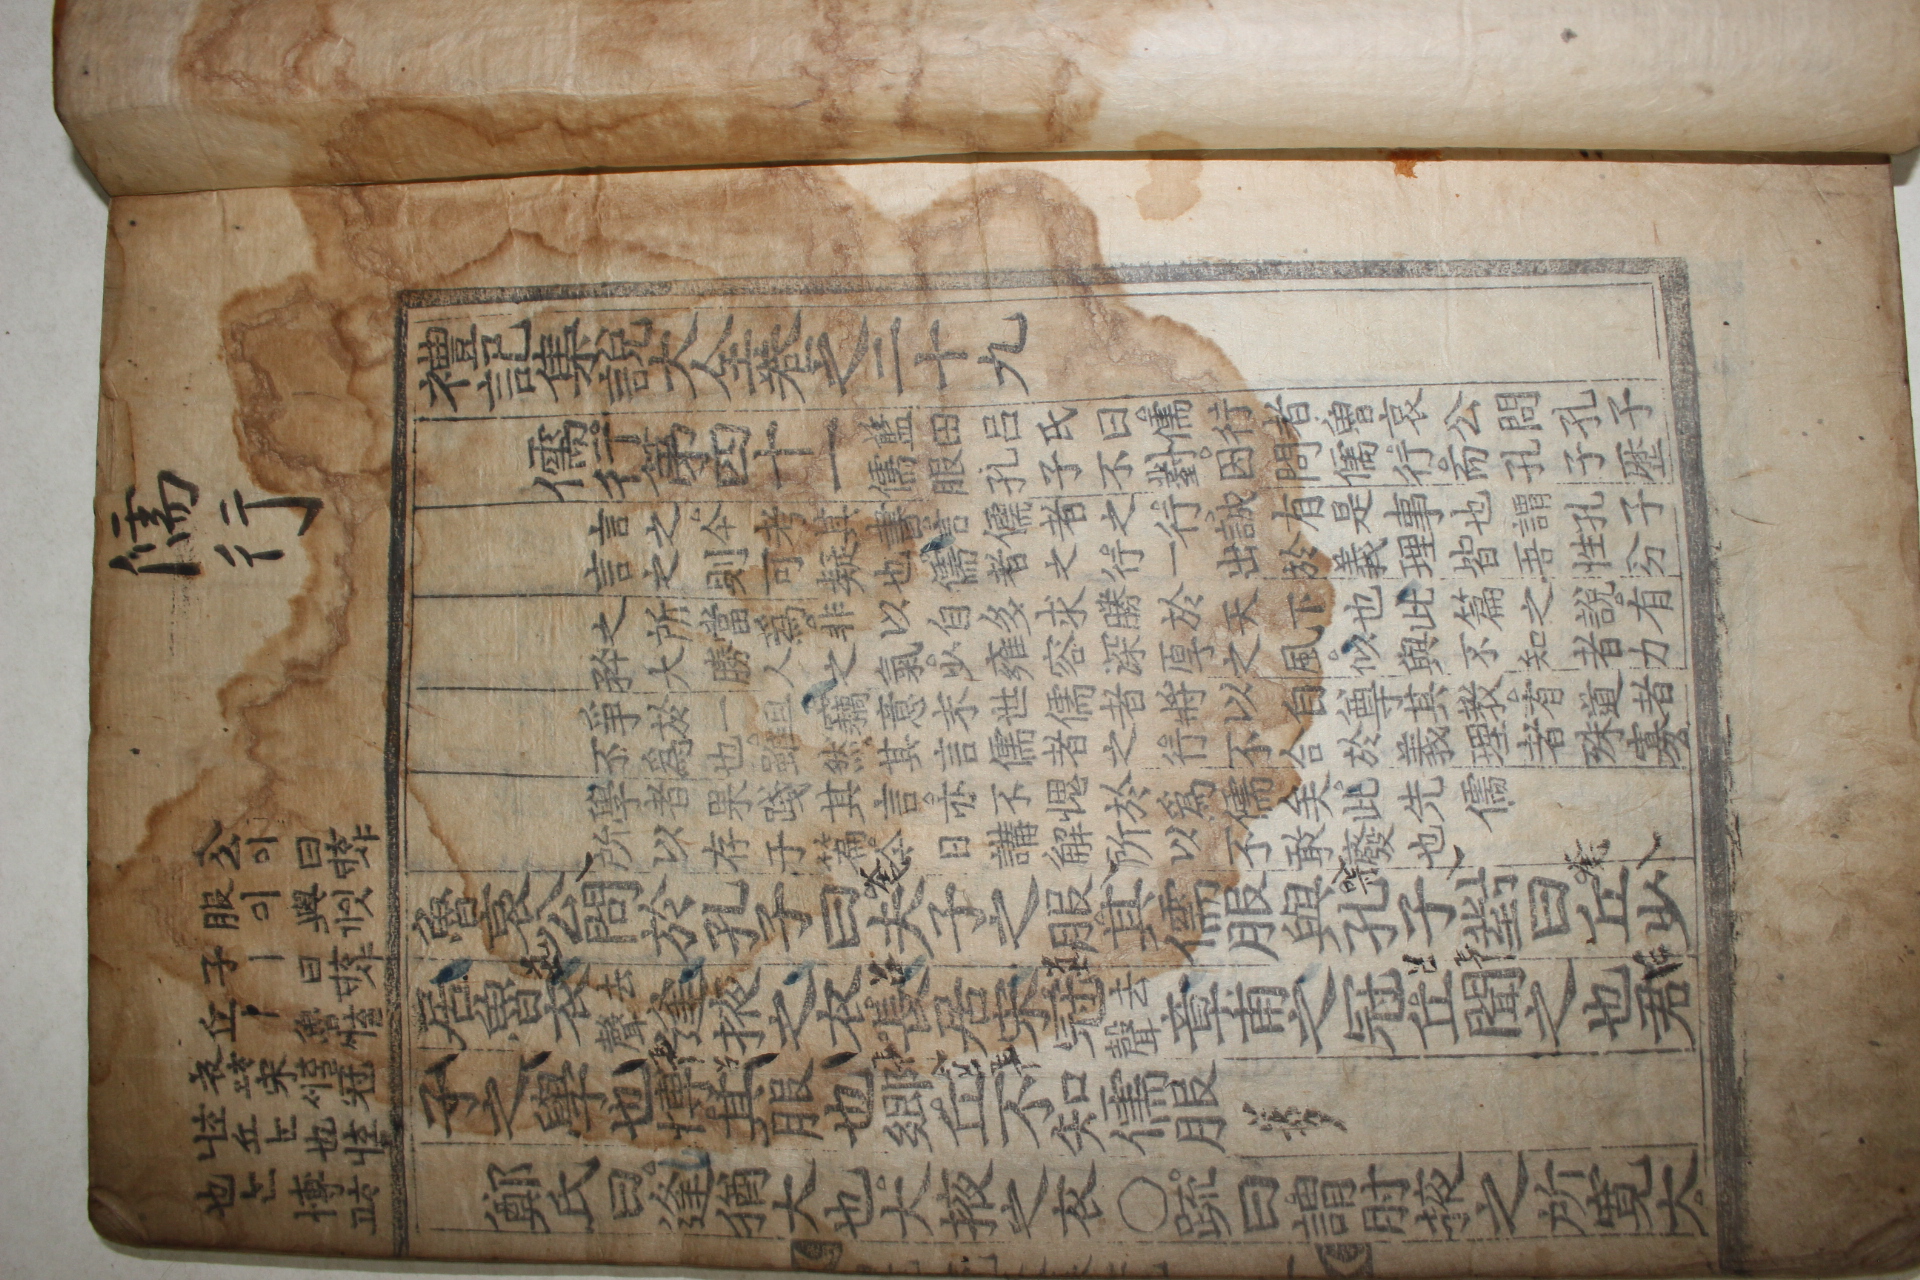 儒行
公이曰
服이與잇가
子ㅣ曰
丘ㅣ魯
宋冠
丘也
也博
禮記集說大全卷之二十九
儒行第四十一
藍田呂氏曰儒行者魯哀公問孔子
儒服孔子不對因問儒行而孔子歷
言之今考其書言儒者之行誠有是事也謂孔子
言之則可疑也儒者之行一出於義理皆吾性分
之所當爲非以自多求勝於天下也此篇之說有
矜大勝人之氣少雍容深厚之風似與不知者力
爭於一旦竊意末世儒者將以自尊其教有道者
不爲也雖然其言儒者之行不合於義理者殊寡
學者果踐其言亦不愧於爲儒矣此先儒
所以存于篇今日講解所以不敢廢也
魯哀公問於孔子曰夫子之服其儒服與孔子對曰丘少
居魯衣去聲逢掖之衣長居宋冠去聲章甫之冠丘聞之也君
子之學也博其服也鄕丘不知儒服
鄭氏曰逢猶大也大掖之衣○疏曰謂肘掖之所寬大